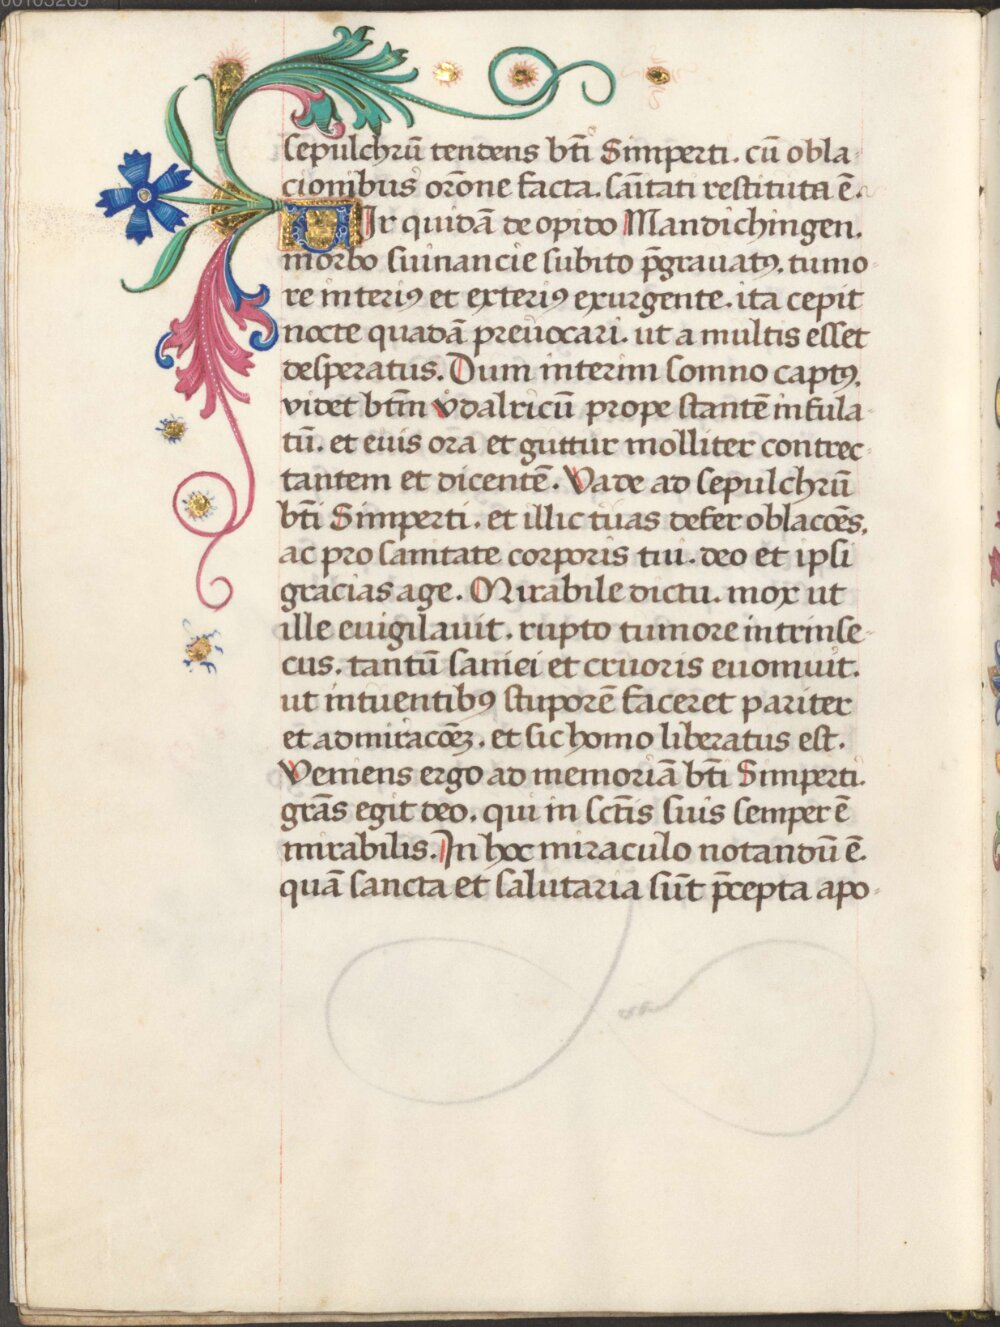 sepulchrū tendens bt̄i Simperti. cū obla-
cionibus orōne facta. sāītati restituta ē.
Uir quidā de opido Mandichingen.
morbo suinancie subito p̄grauatꝰ. tumo-
re interiꝰ et exteriꝰ exurgente. ita cepit
nocte quadā preuocari. ut a multis esset
desperatus. Dum interim somno captꝰ.
videt bt̄m vͦdalricū prope stantē infula-
tū. et euis ora et guttur molliter contrec-
tantem et dicentē. Vade ad sepulchrū
bt̄i Simperti. et illic tuas defer oblacōes.
ac pro sanitate corporis tui. deo et ipsi
gracias age. Mirabile dictu. mox ut
ille euigilauit. rupto tumore intrinse-
cus. tantū saniei et cruoris euomuit.
ut intuentibꝰ stuporē faceret pariter
et admiracōeꝫ. et sic homo liberatus est.
Veniens ergo ad memoriā bt̄i Simperti.
grās egit deo. qui in sct̄is suis semper ē
mirabilis. In hoc miraculo notandū ē.
quā sancta et salutaria sūt p̄cepta apo-